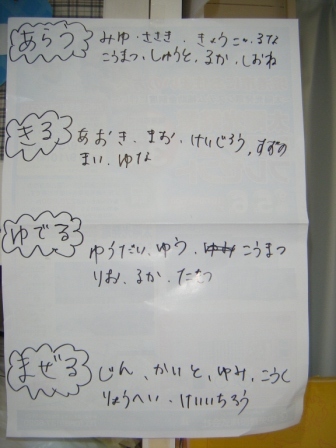 あらう みゆ・ささき・きょうこ・るな
こうまつ・しゅうと・るか・しおね
きる あおき・まお・けいじろう・すずの
まい・ゆな
ゆでる ゆうだい・ゆう・こうまつ
りお・るか・たさつ
まぜる じん、かいと、ゆみ、こうし
りょうへい・けいいちろう